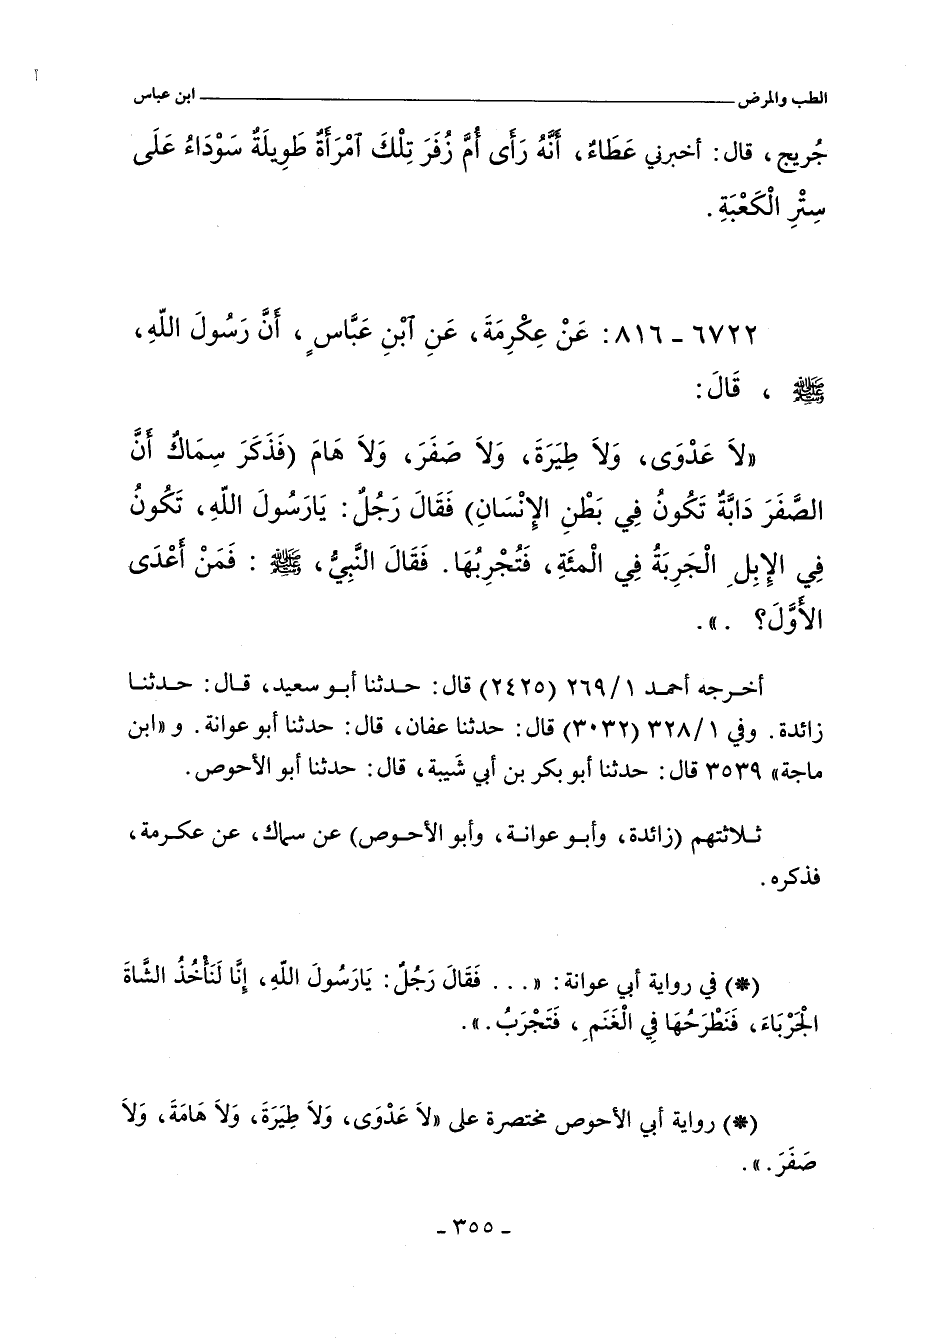 الطب والمرض ــــــــــــــــــــــــــــــــــــــــــــــــ ابن عباس
جُريج، قال: أخبرني عَطَاءُ، أَنَّهُ رَأَى أُمَّ زُفَرَ تِلْكَ آمْرَأَةٌ طَوِيلَةٌ سَوْدَاءُ عَلَى
سِتْرِ الْكَعْبَةِ.
٦٧٢٢ ـ ٨١٦: عَنْ عِكْرِمَةَ، عَنِ آبْنِ عَبَّاسٍ، أَنَّ رَسُولَ اللّهِ،
ﷺ، قَالَ:
«لاَ عَدْوَى، وَلاَ طِيَرَةَ، وَلاَ صَفَرَ، وَلاَ هَامَ (فَذَكَرَ سِمَاكٌ أَنَّ
الصَّفَرَ دَابَّةٌ تَكُونُ فِي بَطْنِ الإِنْسَانِ) فَقَالَ رَجُلٌ: يَارَسُولَ اللّهِ، تَكُونُ
فِي الإِبِلِ الْجَرِبَةُ فِي الْمئَةِ، فَتُجْرِبُهَا. فَقَالَ النَّبِيُّ، ﷺ: فَمَنْ أَعْدَى
الأَوَّلَ؟ .».
أخرجه أحمد ٢٦٩/١ (٢٤٢٥) قال: حدثنا أبو سعيد، قال: حدثنا
زائدة. وفي ٣٢٨/١ (٣٠٣٢) قال: حدثنا عفان، قال: حدثنا أبو عوانة. و«ابن
ماجة» ٣٥٣٩ قال: حدثنا أبو بكر بن أبي شَيبة، قال: حدثنا أبو الأحوص.
ثلاثتهم (زائدة، وأبو عوانة، وأبو الأحوص) عن سماك، عن عكرمة،
فذكره.
(*) في رواية أبي عوانة: «... فَقَالَ رَجُلٌ: يَارَسُولَ اللّهِ، إِنَّا لَنَأْخُذُ الشَّاةَ
الْجَرْبَاءَ، فَنَطْرَحُهَا فِي الْغَنَمِ، فَتَجْرَبُ.».
(*) رواية أبي الأحوص مختصرة على «لاَ عَدْوَى، وَلاَ طِيَرَةَ، وَلاَ هَامَةَ، وَلاَ
صَفَرَ.».
ـ ٣٥٥ ـ